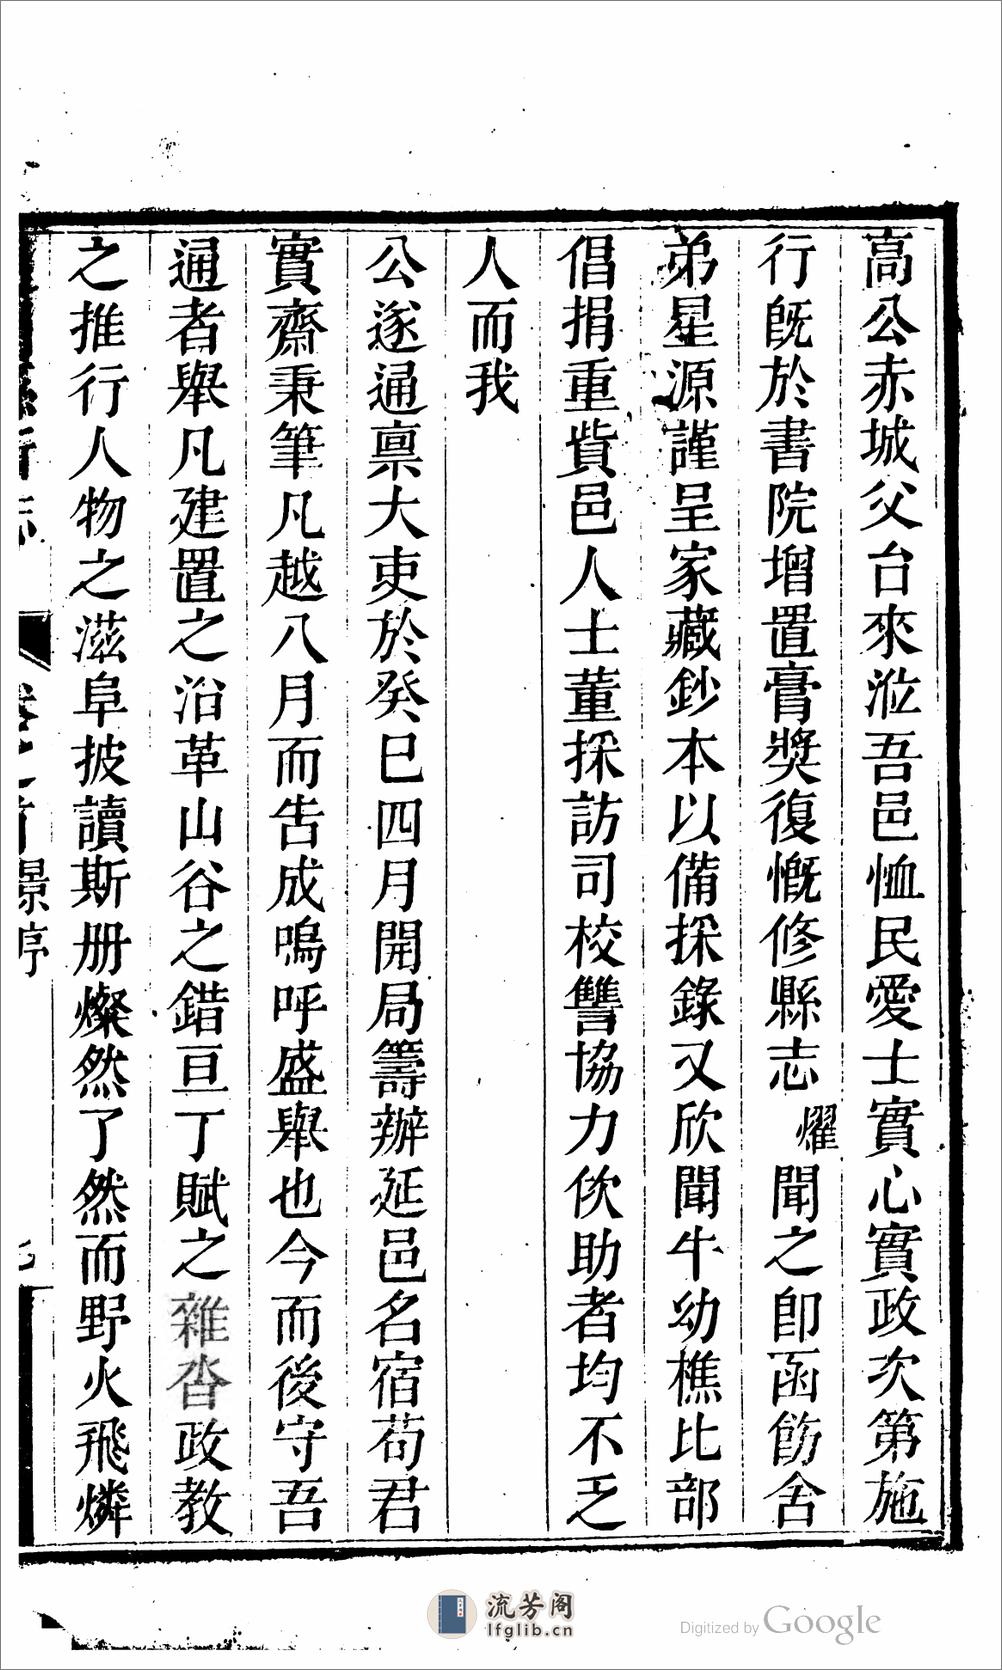 高公赤城父台來涖吾邑恤民愛士實心實政次第施
行旣於書院增置膏獎復慨修縣志燿聞之卽函飭舍
弟星源謹呈家藏鈔本以備採錄又欣聞牛幼樵比部
倡捐重貲邑人士董採訪司校讐協力佽助者均不乏
人而我
公遂通禀大吏於癸巳四月開局籌辦延邑名宿苟君
實齋秉筆凡越八月而告成嗚呼盛舉也今而後守吾
通者舉凡建置之沿革山谷之錯亘丁賦之雜沓政教
之推行人物之滋阜披讀斯册燦然了然而野火飛燐
卷之首 景序
流芳阁
lfglib.cn
Digitized by Google